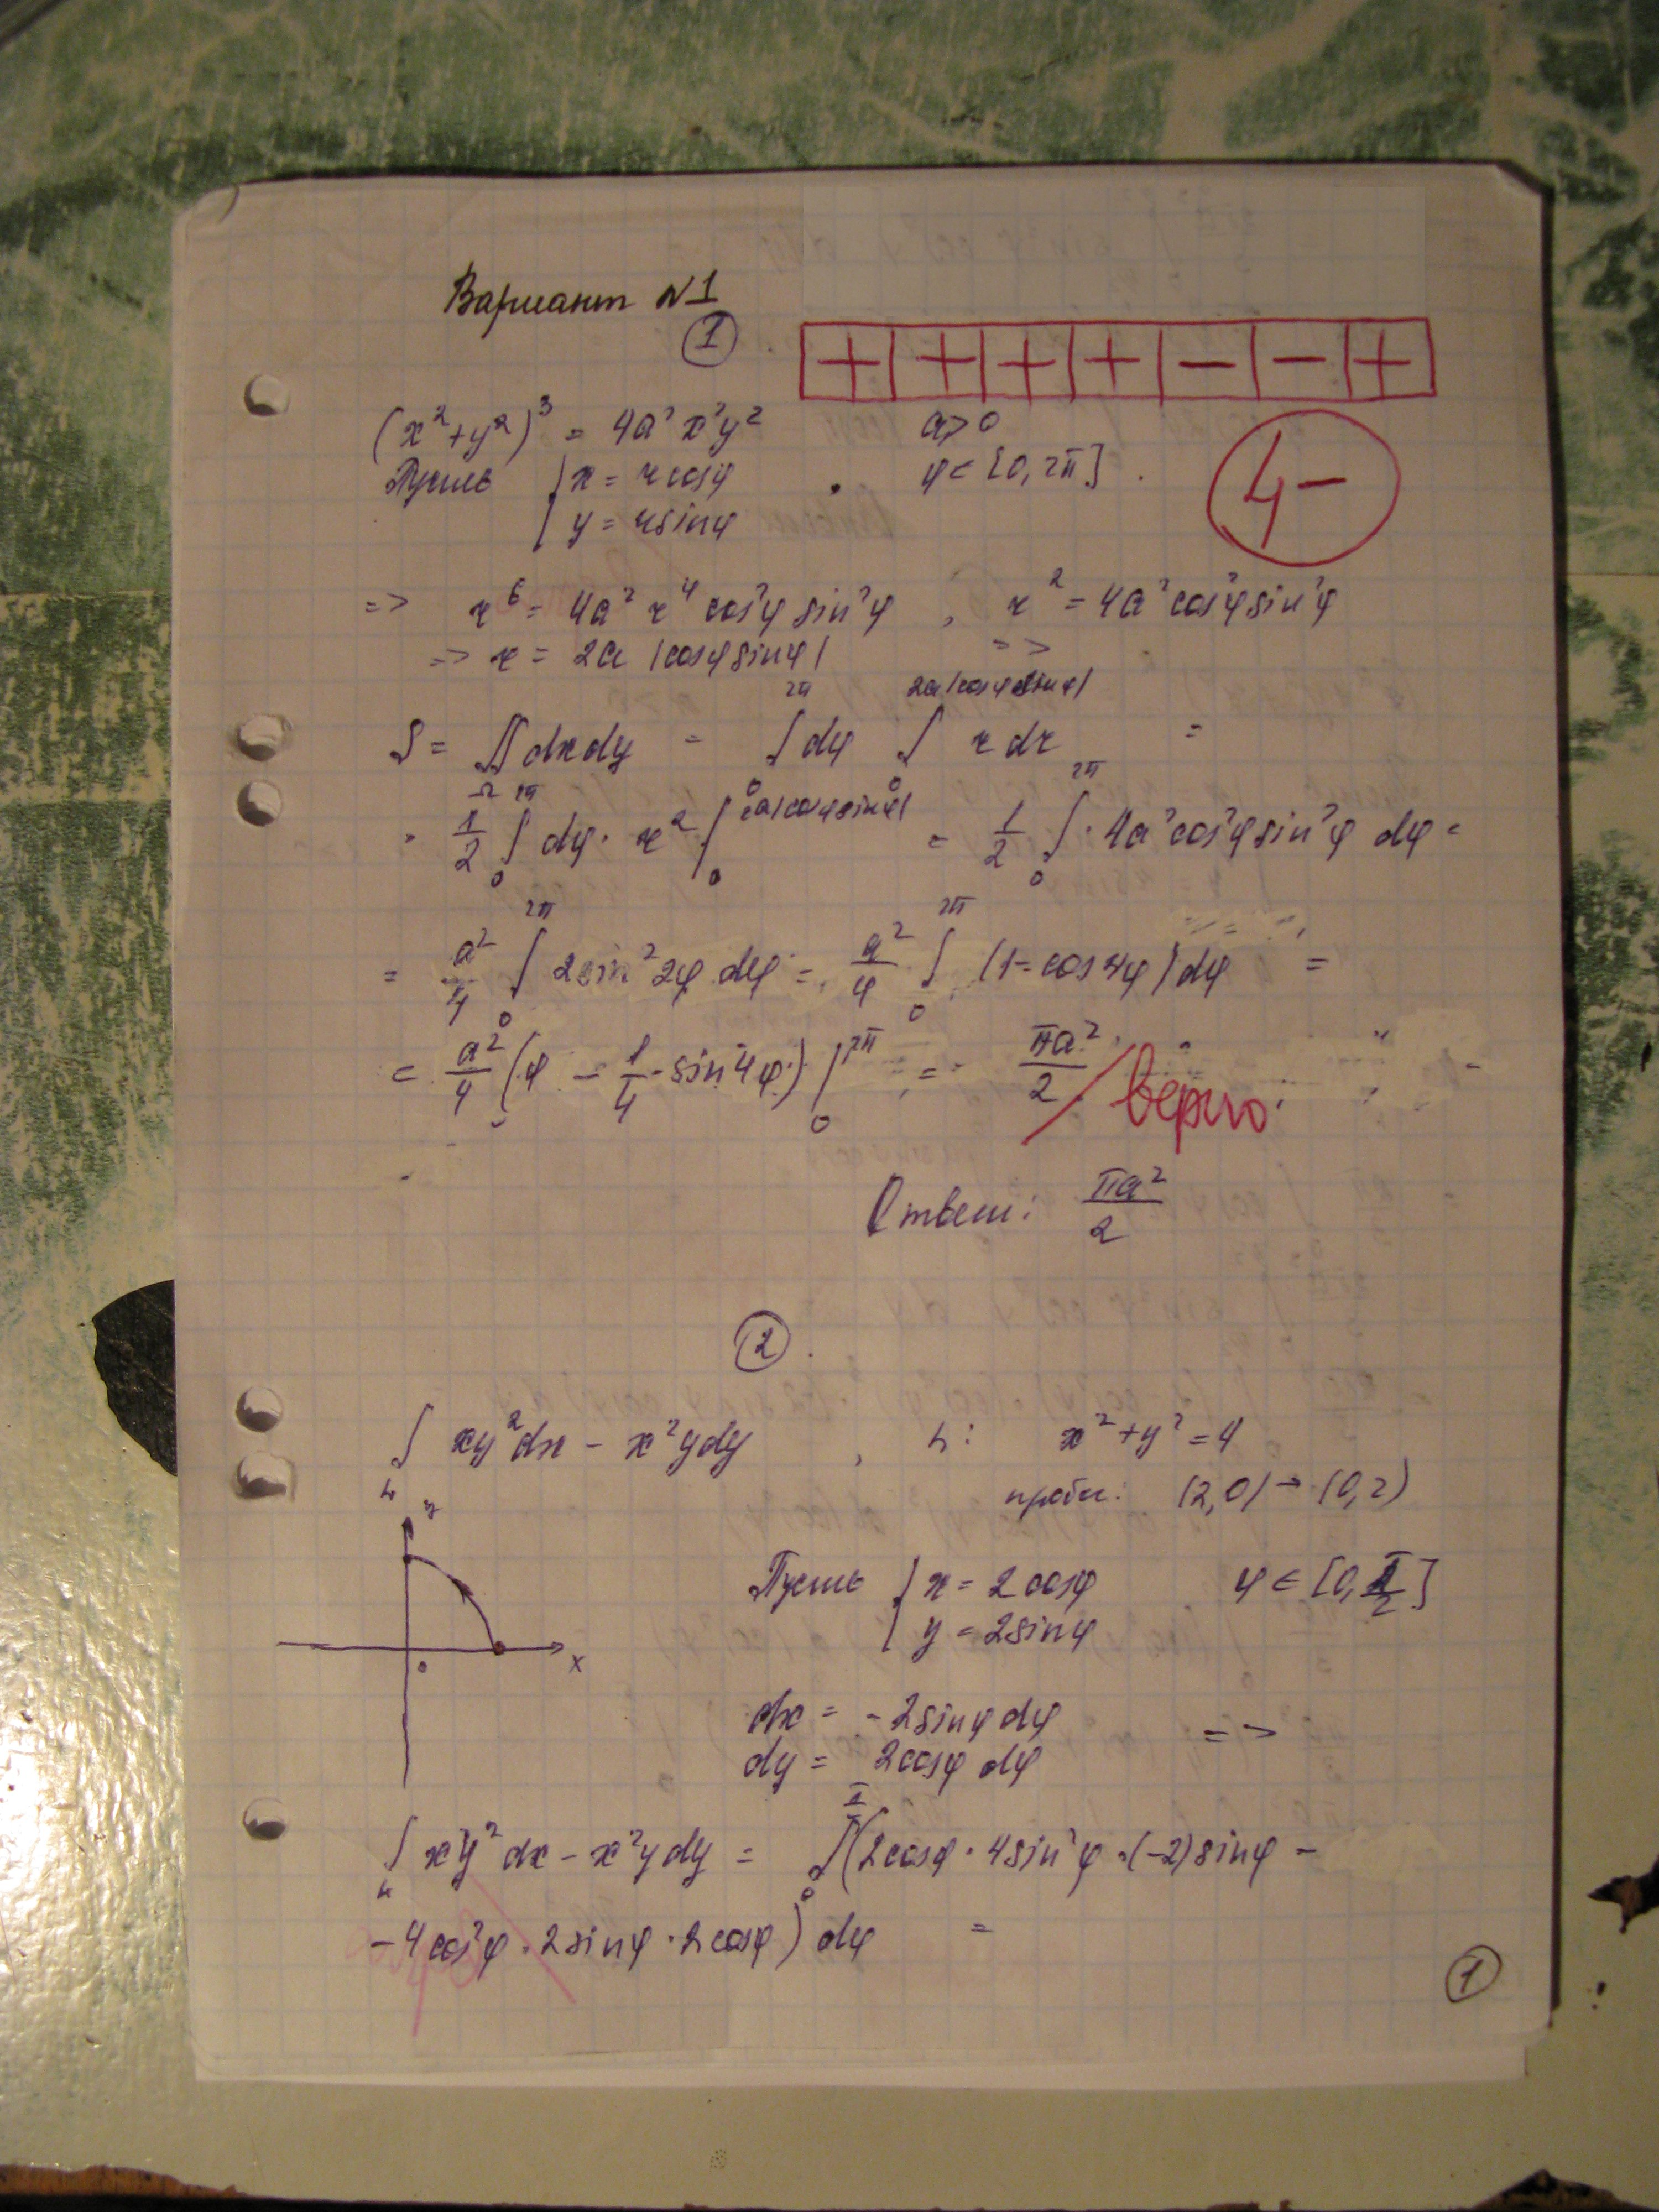 Вариант №1
①
+ + + + − − +
(x²+y²)³ = 4a²x²y² a>0
Пусть { x = r cosφ φ ∈ [0, 2π].
y = r sinφ
4−
=> r⁶ = 4a² r⁴ cos²φ sin²φ , r² = 4a² cos²φ sin²φ =>
=> r = 2a |cosφ sinφ|
S = ∬_Ω dxdy = ∫_0^{2π} dφ ∫_0^{2a|cosφ sinφ|} r dr =
= 1/2 ∫_0^{2π} dφ · r² |_0^{2a|cosφ sinφ|} = 1/2 ∫_0^{2π} · 4a² cos²φ sin²φ dφ =
= a²/4 ∫_0^{2π} 2sin²2φ dφ = a²/4 ∫_0^{2π} (1 − cos4φ) dφ =
= a²/4 (φ − 1/4 · sin4φ) |_0^{2π} = πa²/2 / верно.
Ответ: πa²/2
②
∫_L xy²dx − x²ydy , L: x²+y² = 4
пробег: (2,0) → (0,2)
y
0 x
Пусть { x = 2cosφ φ ∈ [0, π/2]
y = 2sinφ
dx = −2sinφ dφ =>
dy = 2cosφ dφ
∫_L xy²dx − x²ydy = ∫_0^{π/2} (2cosφ · 4sin²φ · (−2)sinφ −
− 4cos²φ · 2sinφ · 2cosφ) dφ =
①